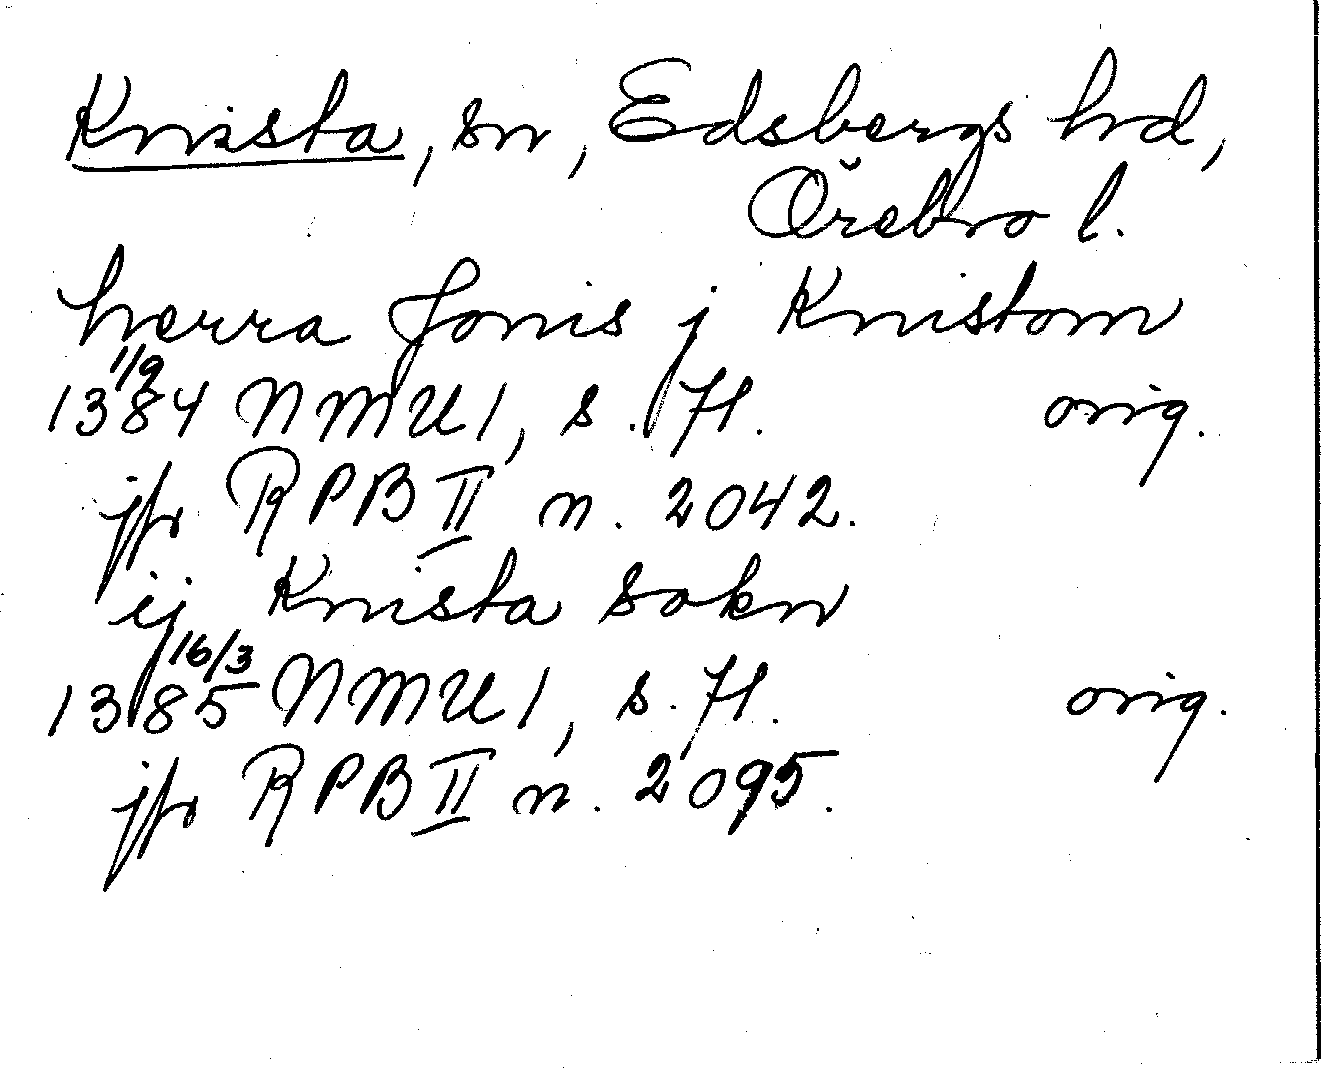 Knista, sn, Edsbergs hrd,
Örebro l.
herra Jonis j Knistom
1384 1/9 NMU 1, s. 71. orig.
jfr RPB II n. 2042.
ij Knista sokn
1385 16/3 NMU 1, s. 71. orig.
jfr RPB II n. 2095.